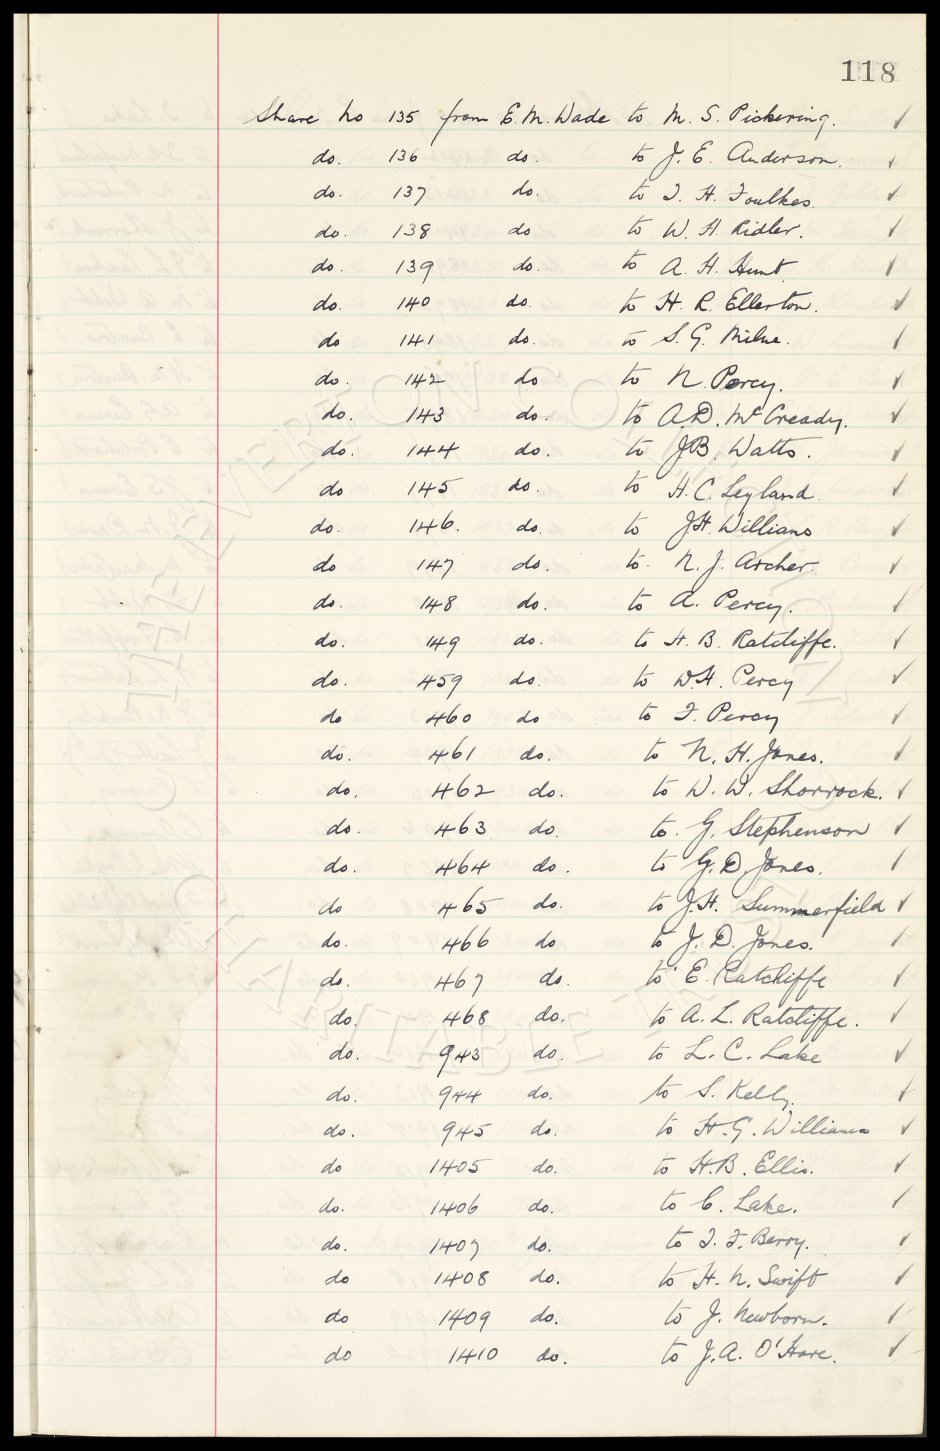 118
Share No 135 from E. M. Wade to M. S. Pickering. ✓
do. 136 do. to J. E. Anderson. ✓
do. 137 do. to T. H. Foulkes. ✓
do. 138 do to W. H. Ridler. ✓
do. 139 do. to A. H. Hunt. ✓
do. 140 do. to H. R. Ellerton. ✓
do 141 do. to S. G. Milne. ✓
do. 142 do to N. Percy. ✓
do. 143 do. to A. D. McCready. ✓
do. 144 do. to J B. Watts. ✓
do 145 do. to H. C. Leyland. ✓
do. 146. do. to J H. Williams ✓
do 147 do. to. N. J. Archer. ✓
do. 148 do. to A. Percy. ✓
do. 149 do. to H. B. Ratcliffe. ✓
do. 459 do. to W. H. Percy ✓
do 460 do to F. Percy ✓
do. 461 do. to N. H. Jones. ✓
do. 462 do. to W. W. Shorrock. ✓
do. 463 do. to. G. Stephenson ✓
do. 464 do. to G. D. Jones. ✓
do 465 do. to J. H. Summerfield ✓
do. 466 do to J. D. Jones. ✓
do. 467 do. to E. Ratcliffe ✓
do. 468 do. to A. L. Ratcliffe. ✓
do. 943 do. to L. C. Lake ✓
do. 944 do. to S. Kelly. ✓
do. 945 do. to H. G. Williams ✓
do 1405 do. to H. B. Ellis. ✓
do. 1406 do. to C. Lake. ✓
do. 1407 do. to T. F. Berry. ✓
do 1408 do. to H. N. Swift ✓
do 1409 do. to J. Newborn. ✓
do 1410 do. to J. A. O'Hare. ✓
THE EVERTON COLLECTION
CHARITABLE TRUST